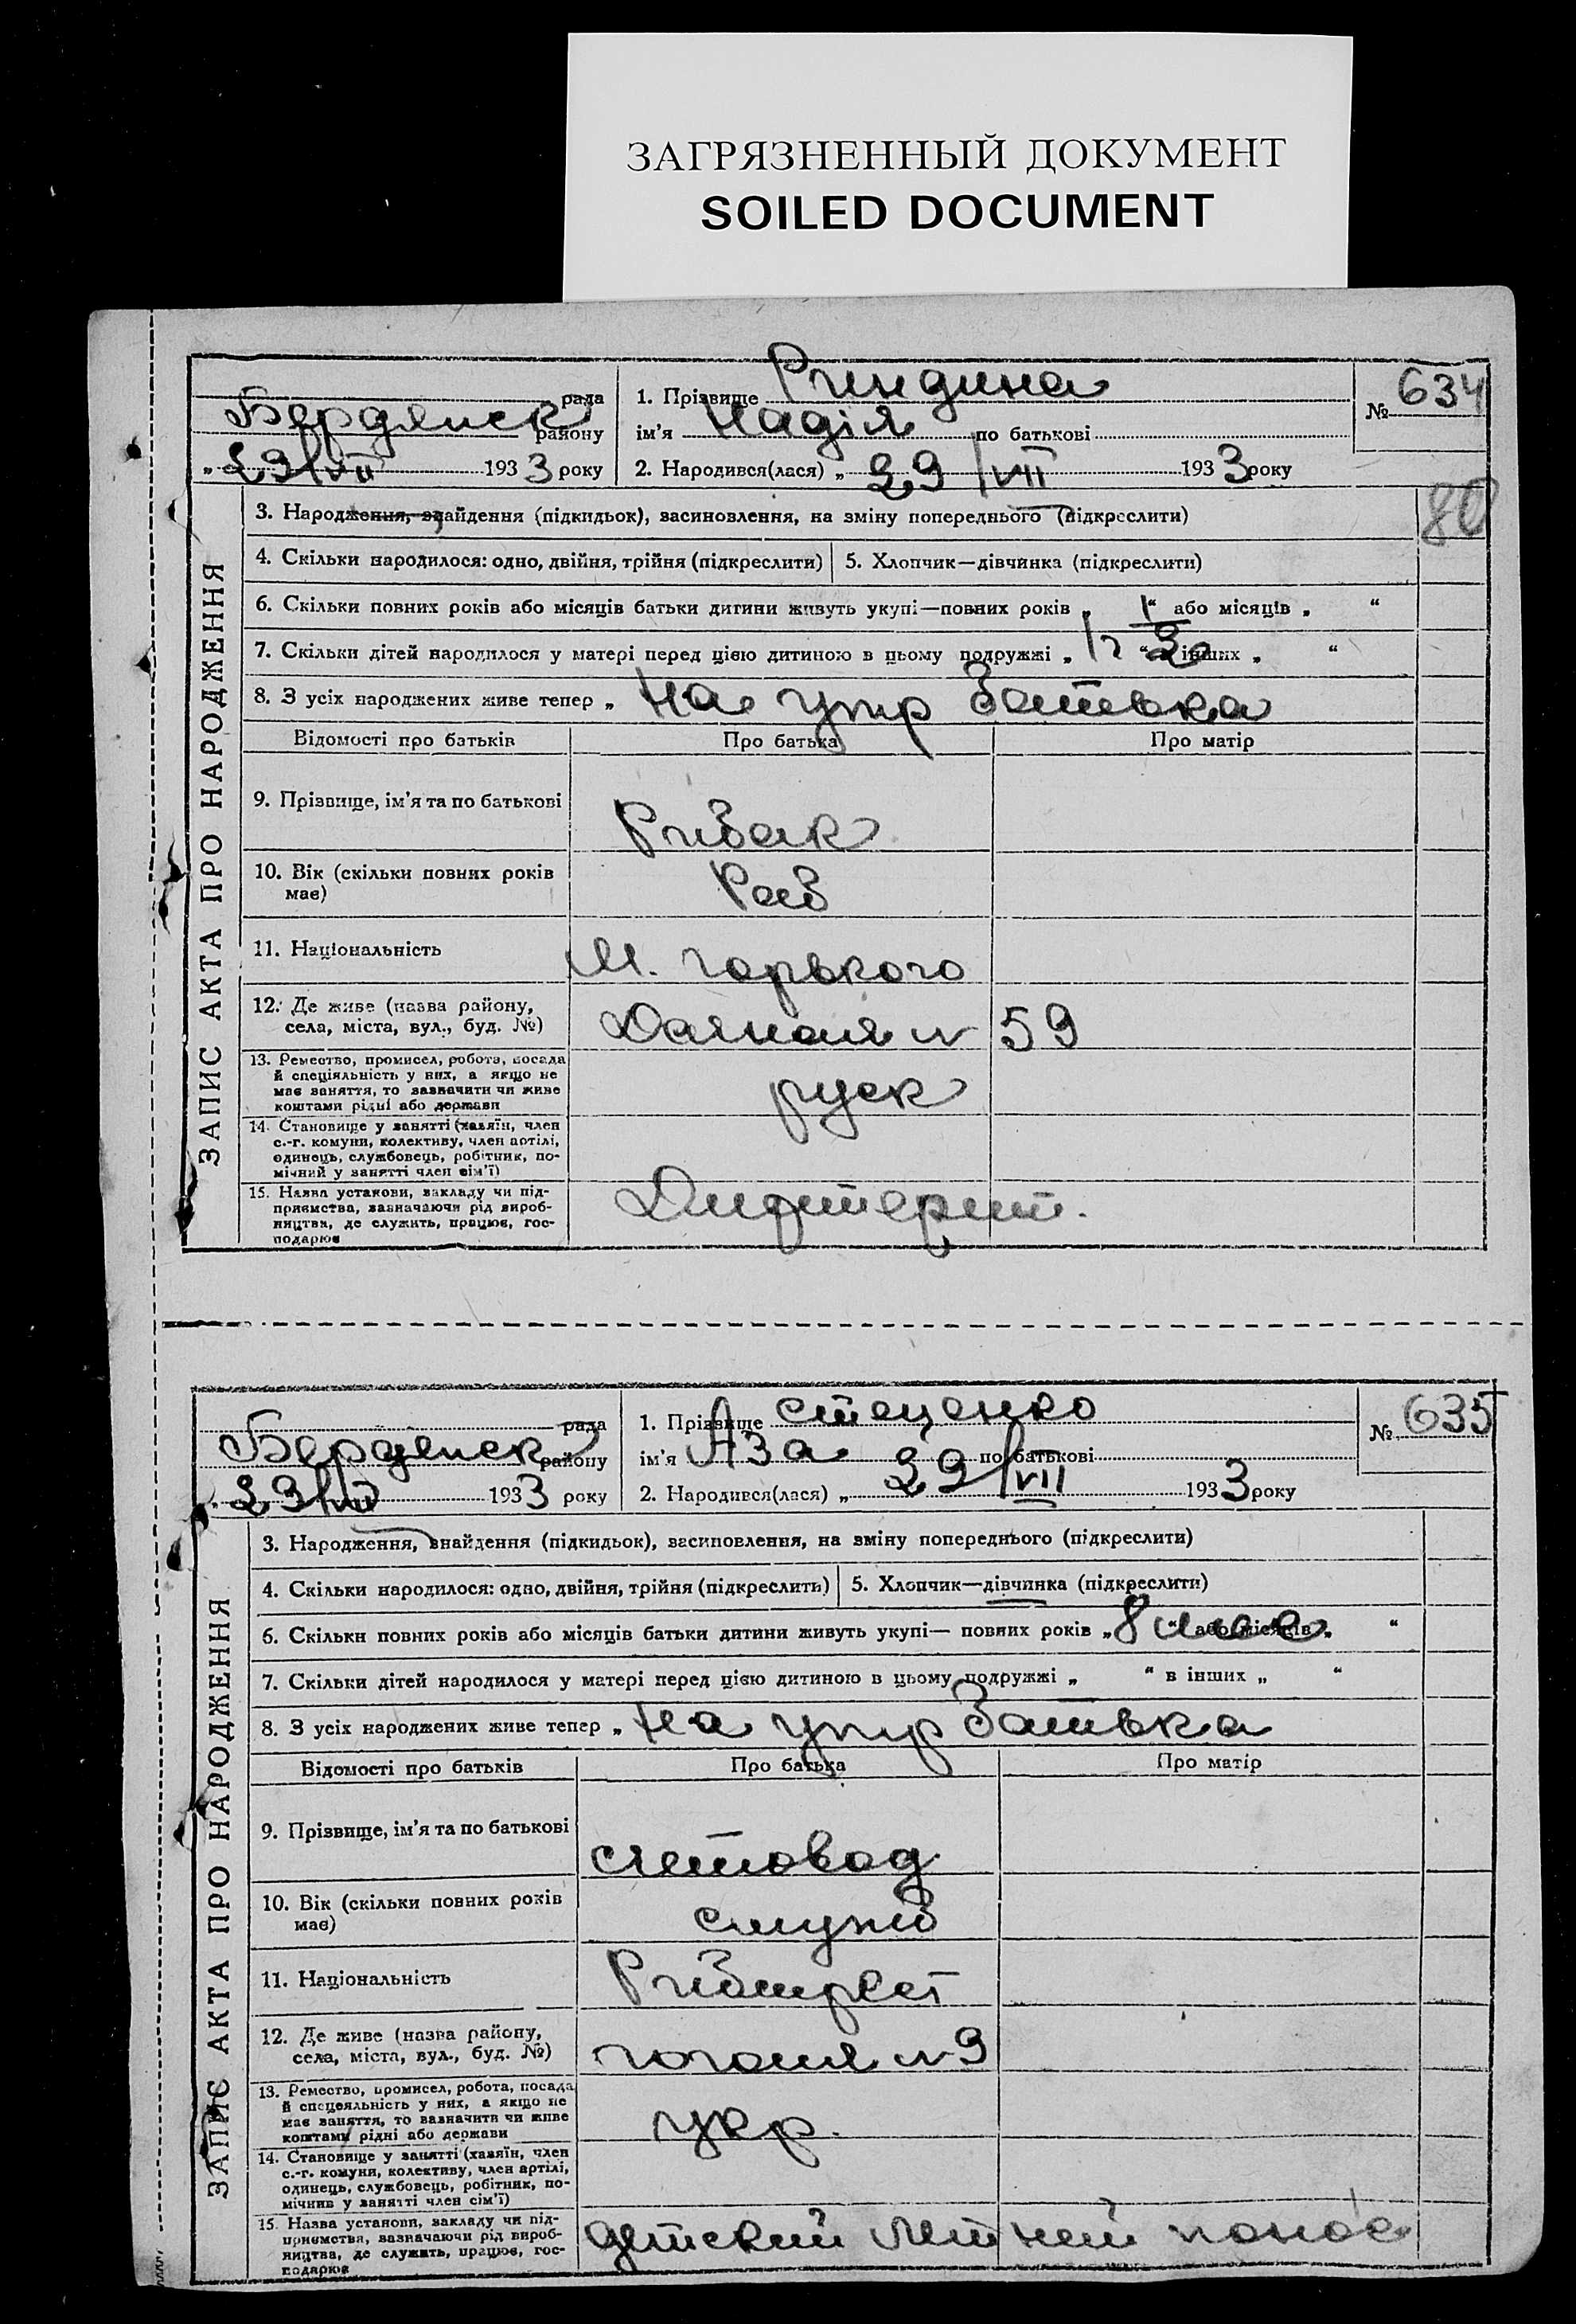 ЗАГРЯЗНЕННЫЙ ДОКУМЕНТ
SOILED DOCUMENT
ЗАПИС АКТА ПРО НАРОДЖЕННЯ
рада
Бердянск району
„29/VII 1933 року
1. Прізвище Риндина
ім’я Надія по батькові
2. Народився(лася) „29/VII 1933 року
№ 634
80
3. Народження, знайдення (підкидьок), засиновлення, на зміну попереднього (підкреслити)
4. Скільки народилося: одно, двійня, трійня (підкреслити) 5. Хлопчик—дівчинка (підкреслити)
6. Скільки повних років або місяців батьки дитини живуть укупі—повних років „ “ або місяців „ “
7. Скільки дітей народилося у матері перед цією дитиною в цьому подружжі „ “ в інших „ “
8. З усіх народжених живе тепер „ На утр Батька
Відомості про батьків Про батька Про матір
9. Прізвище, ім’я та по батькові Рибак
10. Вік (скільки повних років має) Раб
11. Національність М. Горького
12. Де живе (назва району, села, міста, вул., буд. №) № 59
13. Ремество, промисел, робота, посада
й спеціяльність у них, а якщо не
має заняття, то зазначити чи живе
коштами рідні або держави
руск
14. Становище у занятті (хазяїн, член
с.-г. комуни, колективу, член артілі,
одинець, службовець, робітник, по-
мічний у занятті член сім’ї)
15. Назва установи, закладу чи під-
приємства, зазначаючи рід вироб-
ництва, де служить, працює, гос-
подарює
Дифтерит.
ЗАПИС АКТА ПРО НАРОДЖЕННЯ
рада
Бердянск району
„29/VII 1933 року
1. Прізвище Стеценко
ім’я Аза по батькові
2. Народився(лася) „29/VII 1933 року
№ 635
3. Народження, знайдення (підкидьок), засиновлення, на зміну попереднього (підкреслити)
4. Скільки народилося: одно, двійня, трійня (підкреслити) 5. Хлопчик—дівчинка (підкреслити)
6. Скільки повних років або місяців батьки дитини живуть укупі— повних років „8 “ або місяців „ “
7. Скільки дітей народилося у матері перед цією дитиною в цьому подружжі „ “ в інших „ “
8. З усіх народжених живе тепер „ На утр Батька
Відомості про батьків Про батька Про матір
9. Прізвище, ім’я та по батькові счетовод
10. Вік (скільки повних років має) служб
11. Національність Рибтрест
12. Де живе (назва району, села, міста, вул., буд. №) Гоголя № 9
13. Ремество, промисел, робота, посада
й спецеяльність у них, а якщо не
має заняття, то вазначити чи живе
коштами рідні або держави
укр.
14. Становище у занятті (хазяїн, член
с.-г. комуни, колективу, член артілі,
одинець, службовець, робітник, по-
мічнив у занятті член сім’ї)
15. Назва установи, закладу чи під-
приємства, зазначаючи рід вироб-
ництва, де служить, працює, гос-
подарює
Детский летний понос